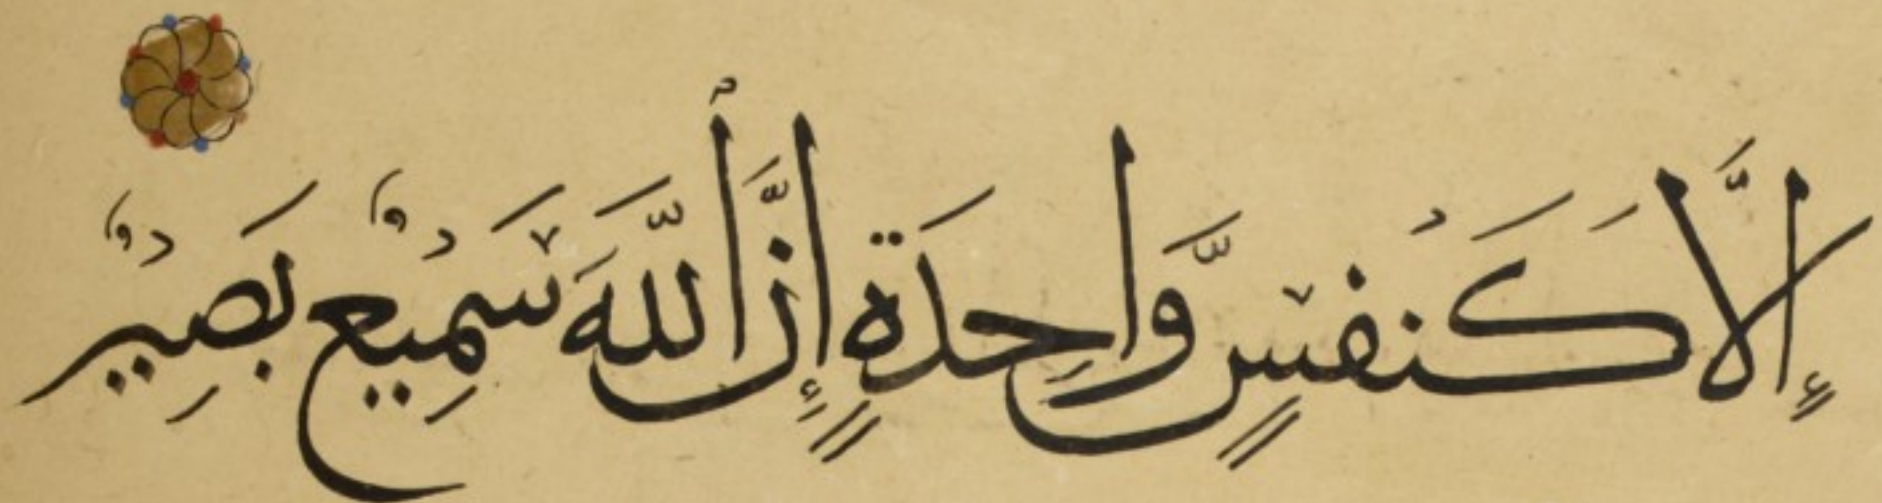 إِلَّا كَنَفْسٍ وَّاحِدَةٍ إِنَّ ٱللَّهَ سَمِيْعٌ بَصِيْرٌ